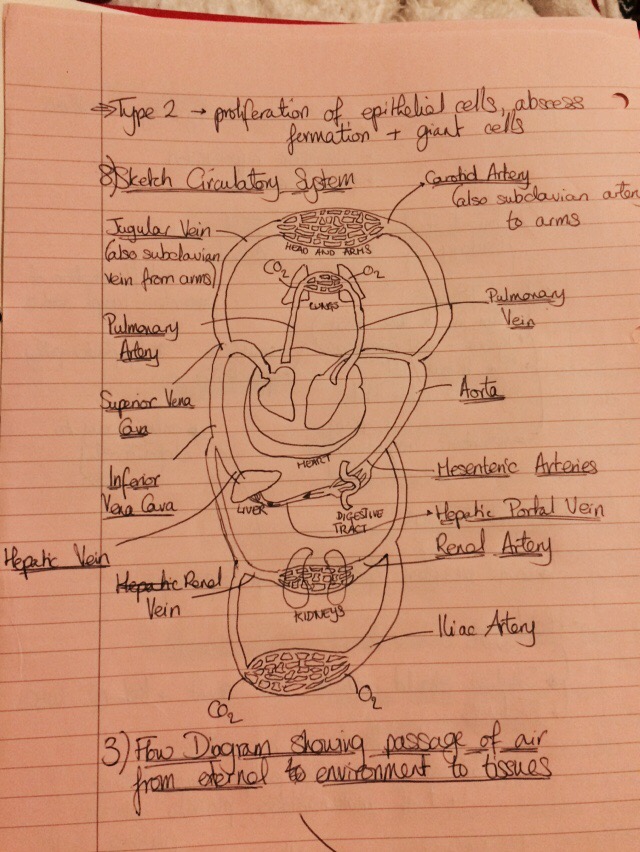 ⇒ Type 2 → proliferation of epithelial cells, abscess
formation + giant cells
8) Sketch Circulatory System
Carotid Artery
(also subclavian artery
to arms
Jugular Vein
(also subclavian
vein from arms)
HEAD AND ARMS
CO2
O2
LUNGS
Pulmonary
Artery
Pulmonary
Vein
Superior Vena
Cava
Aorta
HEART
Inferior
Vena Cava
Mesenteric Arteries
LIVER
DIGESTIVE
TRACT
Hepatic Portal Vein
Hepatic Vein
Renal Artery
Hepatic Renal
Vein
KIDNEYS
Iliac Artery
CO2
O2
3) Flow Diagram showing passage of air
from external to environment to tissues